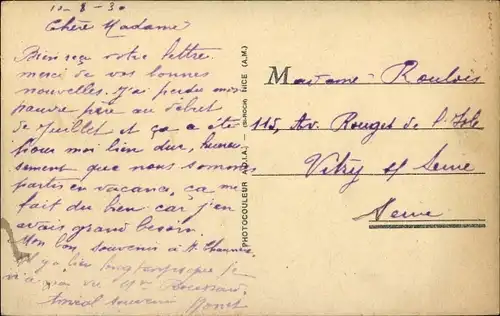 10-8-30
Chère Madame
Bien reçu votre lettre
merci de vos bonnes
nouvelles. J'ai perdu mon
pauvre père au début
de Juillet et ça a été
pour moi bien dur, heureu-
sement que nous sommes
partis en vacance, ça me
fait du bien car j'en
avais grand besoin.
Mon bon souvenir à M.
il y a bien longtemps que je
n'ai pas vu Mme
Amical souvenir
PHOTOCOULEUR (D.I.A.) (St-ROCH) NICE (A.M.)
Madame Roulois
115, Av. Rouget de l'Isle
Vitry s/ Seine
Seine